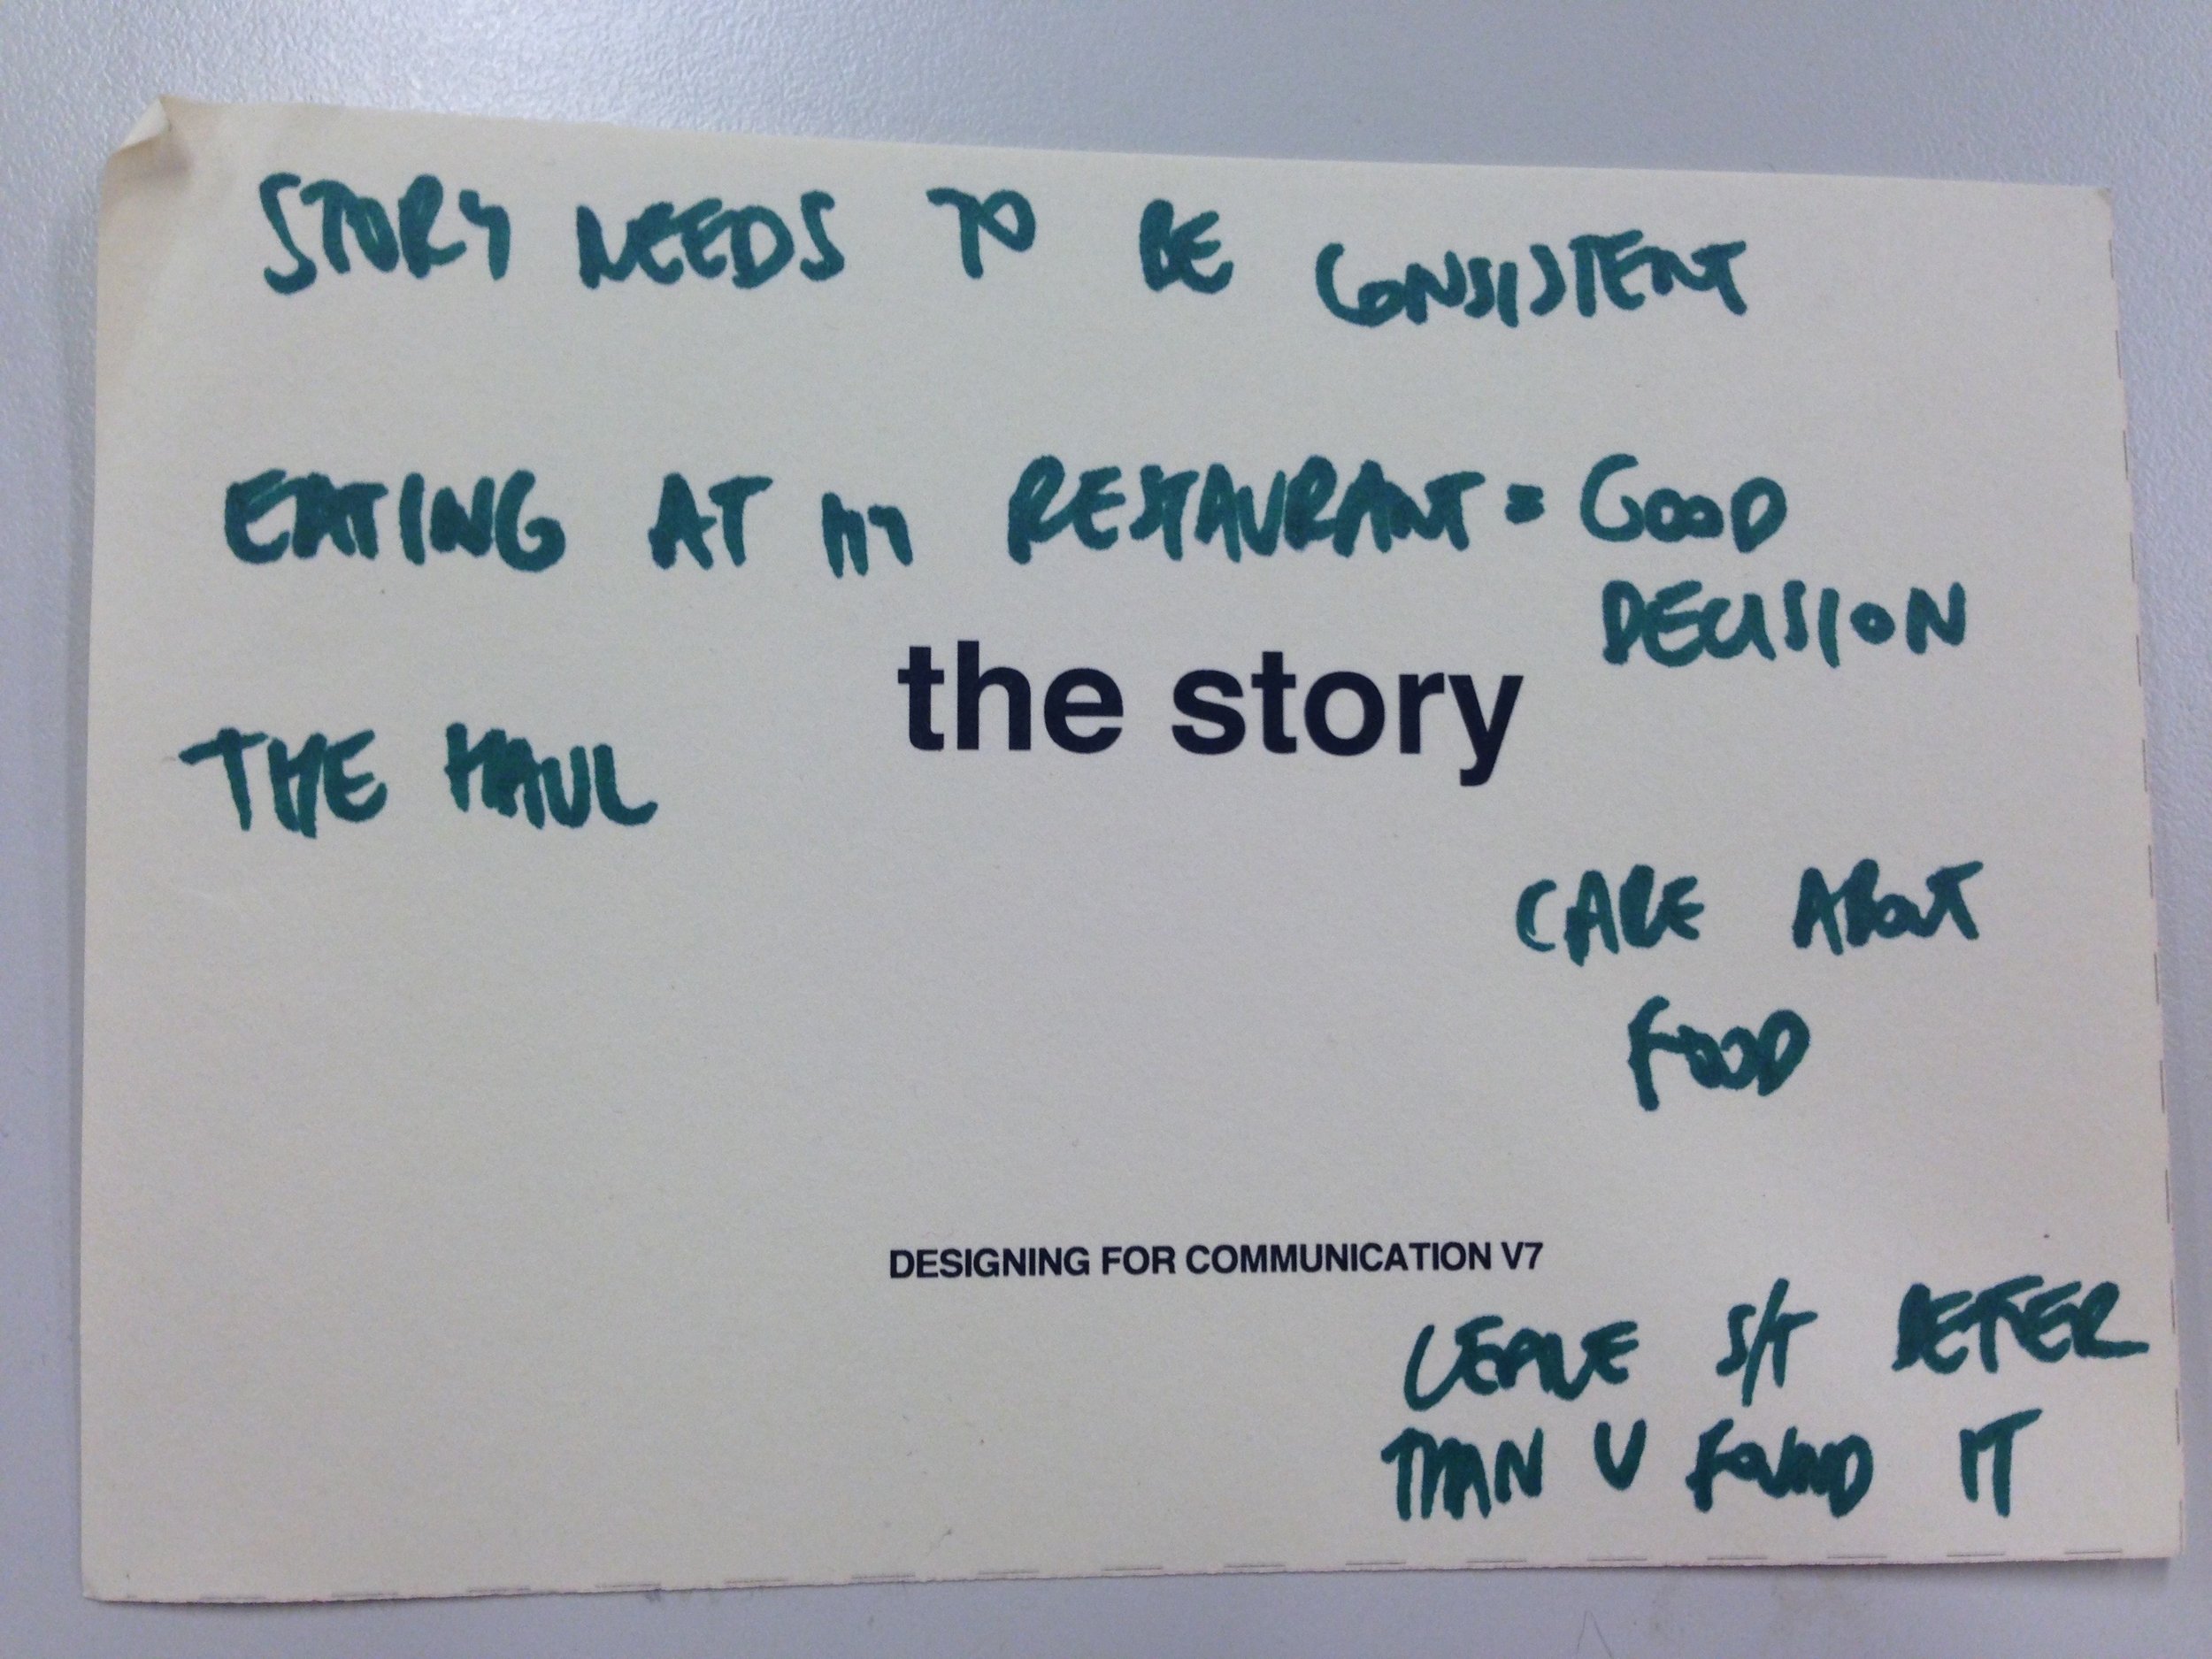 STORY NEEDS TO BE CONSISTENT
EATING AT MY RESTAURANT = GOOD
DECISION
the story
THE HAUL
CARE ABOUT
FOOD
DESIGNING FOR COMMUNICATION V7
LEAVE S/T BETTER
THAN U FOUND IT